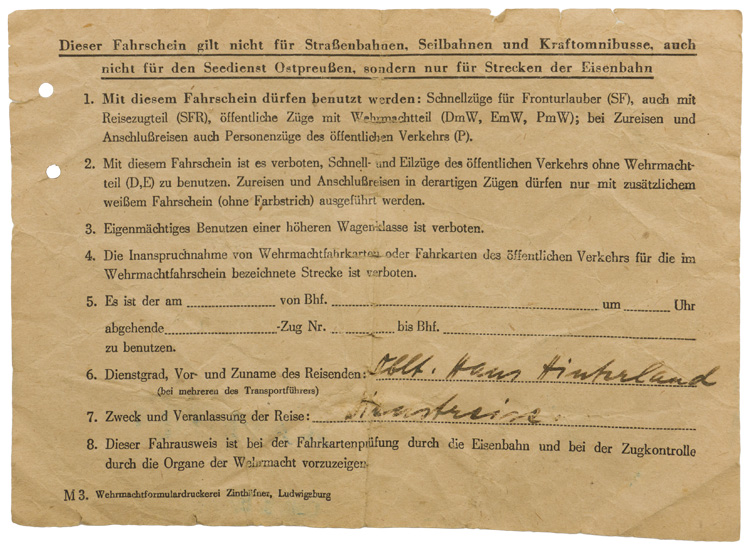 Dieser Fahrschein gilt nicht für Straßenbahnen, Seilbahnen und Kraftomnibusse, auch
nicht für den Seedienst Ostpreußen, sondern nur für Strecken der Eisenbahn
1. Mit diesem Fahrschein dürfen benutzt werden: Schnellzüge für Fronturlauber (SF), auch mit
Reisezugteil (SFR), öffentliche Züge mit Wehrmachtteil (DmW, EmW, PmW); bei Zureisen und
Anschlußreisen auch Personenzüge des öffentlichen Verkehrs (P).
2. Mit diesem Fahrschein ist es verboten, Schnell- und Eilzüge des öffentlichen Verkehrs ohne Wehrmacht-
teil (D,E) zu benutzen. Zureisen und Anschlußreisen in derartigen Zügen dürfen nur mit zusätzlichem
weißem Fahrschein (ohne Farbstrich) ausgeführt werden.
3. Eigenmächtiges Benutzen einer höheren Wagenklasse ist verboten.
4. Die Inanspruchnahme von Wehrmachtfahrkarten oder Fahrkarten des öffentlichen Verkehrs für die im
Wehrmachtfahrschein bezeichnete Strecke ist verboten.
5. Es ist der am von Bhf. um Uhr
abgehende -Zug Nr. bis Bhf.
zu benutzen.
6. Dienstgrad, Vor- und Zuname des Reisenden: Oblt. Hans Hinterland
(bei mehreren des Transportführers)
7. Zweck und Veranlassung der Reise: Dienstreise.
8. Dieser Fahrausweis ist bei der Fahrkartenprüfung durch die Eisenbahn und bei der Zugkontrolle
durch die Organe der Wehrmacht vorzuzeigen.
M 3. Wehrmachtformulardruckerei Zinthäfner, Ludwigsburg